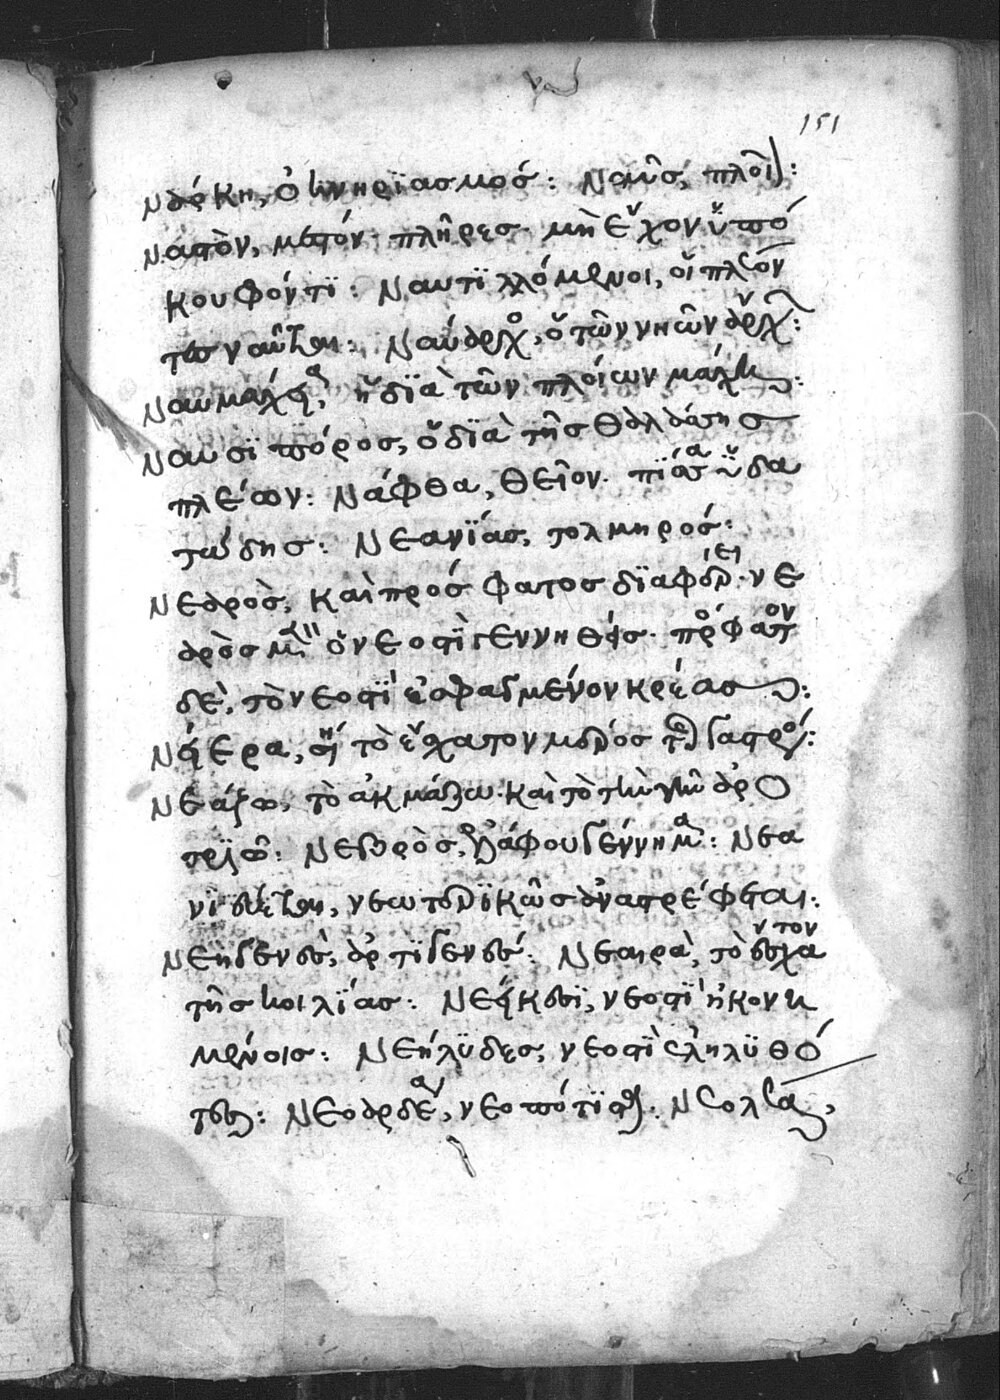 151
νάρκη, ὁ κνηριασμός: Ναῦς, πλοῖον:
ναστὸν, μεστόν· πλῆρες· μὴ ἔχον ὑπό
κουφόν τι: Ναυτιλλόμενοι, οἱ πλέον
τες ναῦται: Ναύαρχος, ὁ τῶν νηῶν ἄρχων:
ναυμαχία, ἡ διὰ τῶν πλοίων μάχη:
ναυσιπόρος, ὁ διὰ τῆς θαλάσσης
πλέων: Νάφθα, θεῖον· πίσσα ὑδα
τώδης: Νεανίας, τολμηρός:
νεαρὸς, καὶ πρόσφατος διαφέρει· νε
αρὸς μὲν ὁ νεοστὶ γεννηθείς· πρόσφατον
δὲ, τὸ νεοστὶ ἐσφαγμένον κρέας:
Νείερα, τὸ ἔσχατον μέρος τῆς γαστρός:
νεάζω, τὸ ἀκμάζω· καὶ τὸ τὴν γῆν ἀρο
τριῶ: Νεβρὸς, ἐλάφου γέννημα: Νεα
νιεύεται, νεωτερικῶς ἀναστρέφεται:
νεηγενὲς, ἀρτιγενές: Νεαιρὰ, τὸ ἔσχατον
τῆς κοιλίας: νεοστὶ ἠκονη
μένοις: Νεήλυδες, νεοστὶ ἐληλυθό
τες: Νεοαρδέα, νεοπότιστον: